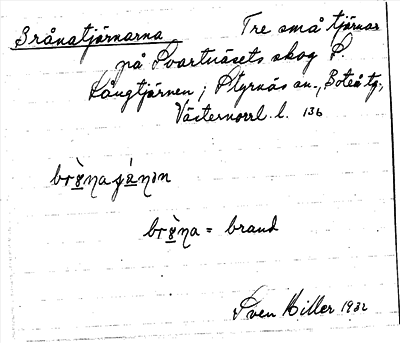 Brånatjärnarna Tre små tjärnar
på Svartnäsets skog S.
Långtjärnen; Styrnäs sn., Boteå tg.,
Västernorrl. l. 136
= brand
Sven Hiller 1932